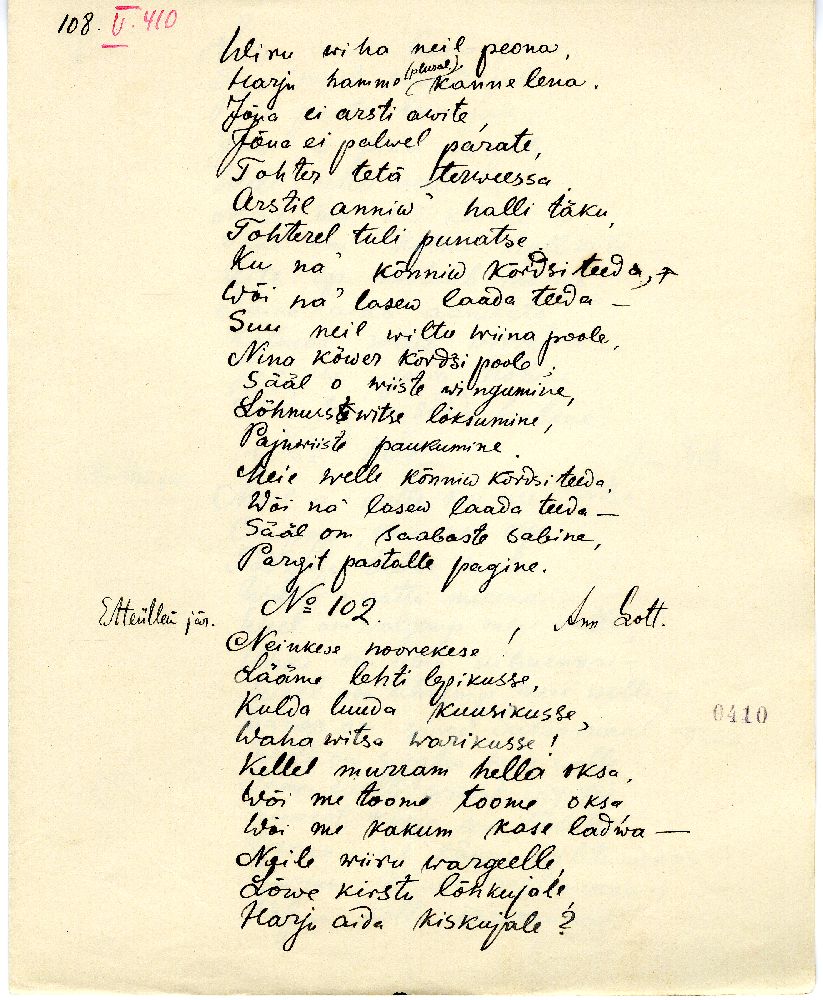 108. U. 410
Wiru wiha neil peona,
Harju hamme (plural) kannelena.
Jõna ei arsti awite,
Jõna ei palwel parate,
Tohter tetä terweessa,
Arstil anniw' halli täku,
Tohterel tuli punatse.
Ku na' kõnniw kõrdsi teeda,
Wõi na' lasew laada teeda —
Suu neil wiltu wiina poole,
Nina kõwer kõrdsi poole,
Sääl o wiiste wingumine,
Lõhmustwitse loksumine,
Pajuwiiste paukumine.
Meie welle kõnniw kõrdsi teeda,
Wõi na' lasew laada teeda —
Sääl om saabaste sabine,
Pargit pastalte pagine.
Etteütleu jär. No 102. Ann Lott.
Neinkese noorekese!
Lääme lehti lepikusse,
Kulda luuda kuusikusse,
Waha witsa warikusse!
Kellel murram hella oksa,
Wõi me toome toome oksa
Wõi me kakum kase ladwa —
Neile wiiru wargeelle,
Lõwe kirstu lõhkujale,
Harju aida kiskujale?
0410